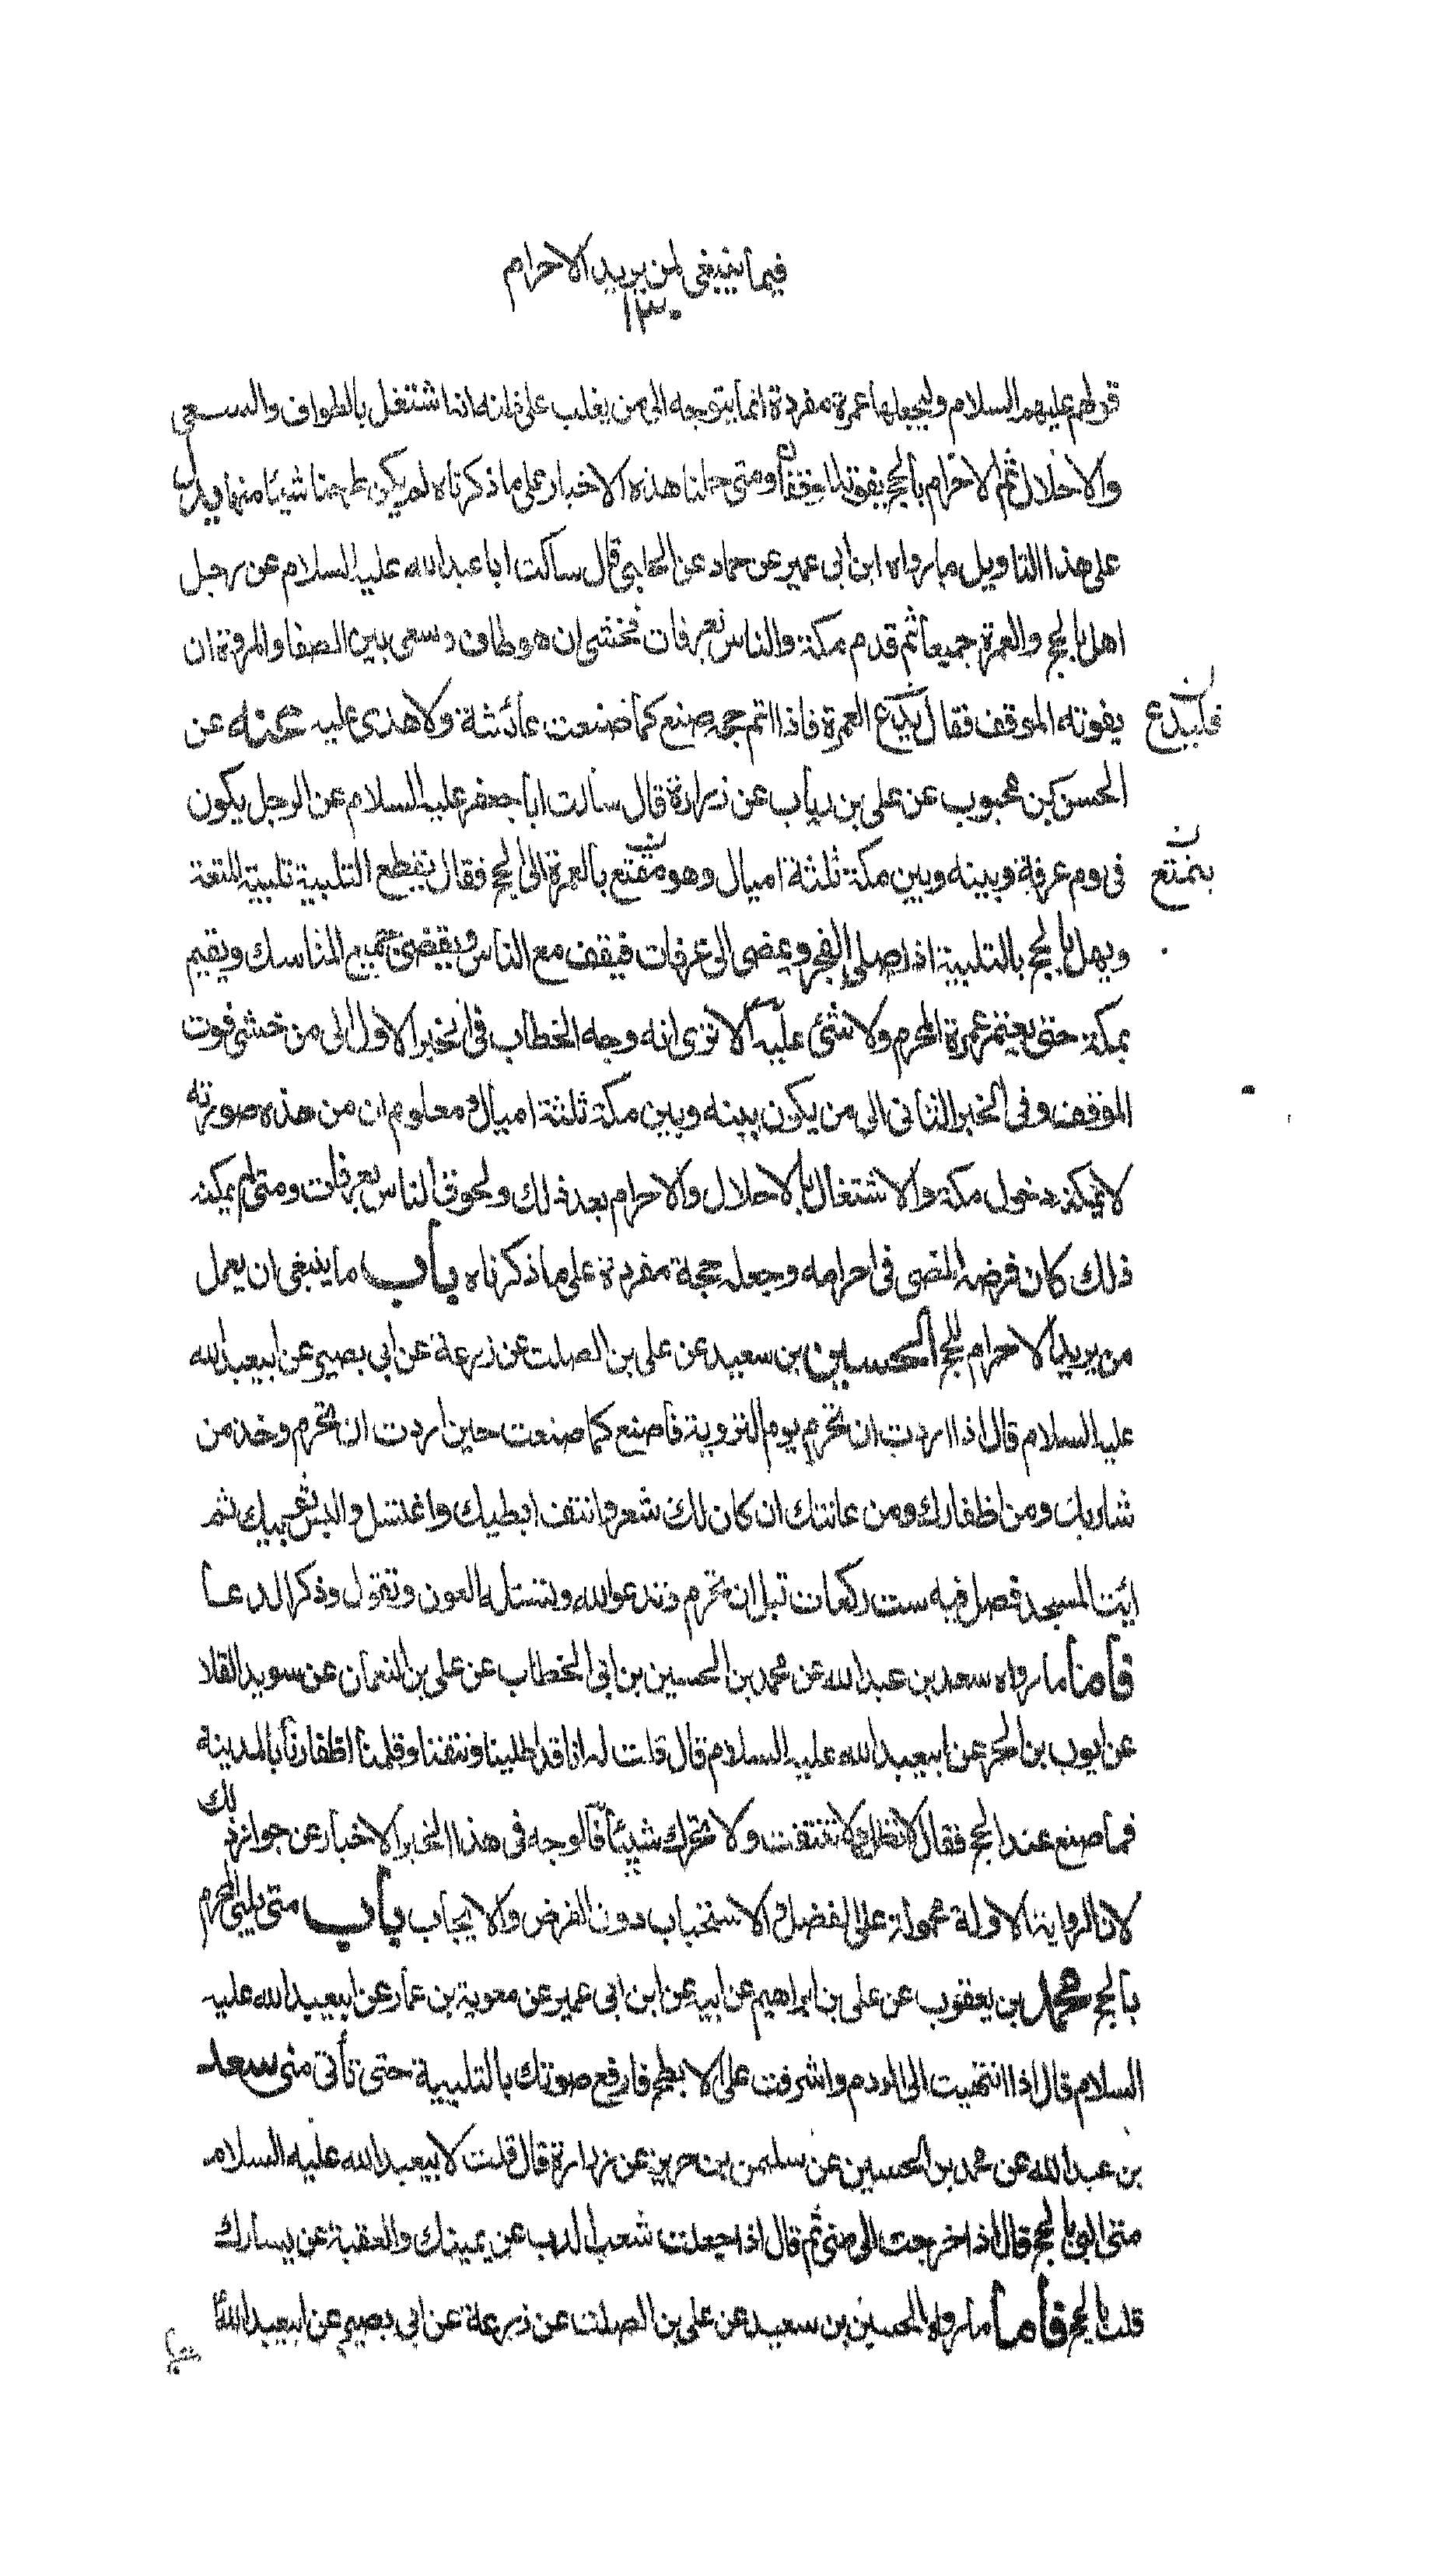 فيما ينبغي لمن يريد الاحرام
١٣٠
قولهم عليهم السلام وليجعلها عمرة مفردة انما يتوجه الى من يغلب على ظنه انه اذا اشتغل بالطواف والسعي
والاحلال ثم الاحرام بالحج يفوته الموقفان ومتى حملنا هذه الاخبار على ما ذكرناه لم يكن طرحنا شيئا منها ويدل
على هذا التاويل ما رواه ابن ابي عمير عن حماد عن الحلبي قال سالت ابا عبد الله عليه السلام عن رجل
اهل بالحج والعمرة جميعا ثم قدم مكة والناس بعرفات فخشى ان هو طاف وسعى بين الصفا والمروة ان
يفوته الموقف فقال يدع العمرة فاذا اتم حجه صنع كما صنعت عائشة ولا هدى عليه عنه عن
فليدع
الحسن بن محبوب عن على بن رياب عن زرارة قال سالت ابا جعفر عليه السلام عن الرجل يكون
في يوم عرفة وبينه وبين مكة ثلثة اميال وهو متمتع بالعمرة الى الحج فقال يقطع التلبية تلبية المتعة
يتمتع
ويهل بالحج بالتلبية اذا صلى الفجر ويمضى الى عرفات فيقف مع الناس ويقضى جميع المناسك ويقيم
بمكة حتى يعتمر عمرة المحرم ولا شئ عليه الا ترى انه وجه الخطاب في الخبر الاول الى من خشى فوت
الموقف وفى الخبر الثاني الى من يكون بينه وبين مكة ثلثة اميال ومعلوم ان من هذه صورته
لا يمكنه دخول مكة والاشتغال بالاحلال والاحرام بعد ذلك ولحوق الناس بعرفات ومتى لم يمكنه
ذلك كان فرضه المضى في احرامه وجعله حجة مفردة على ما ذكرناه باب ما ينبغي ان يعمل
من يريد الاحرام للحج الحسين بن سعيد عن على بن الصلت عن زرعة عن ابي بصير عن ابيعبد الله
عليه السلام قال اذا اردت ان تحرم يوم التروية فاصنع كما صنعت حين اردت ان تحرم وخذ من
شاربك ومن اظفارك ومن عانتك ان كان لك شعر وانتف ابطيك واغتسل والبس ثوبيك ثم
ايت المسجد فصل فيه ست ركعات قبل ان تحرم وتدعو الله وتسئله العون وتقول وذكر الدعا
فاما ما رواه سعد بن عبد الله عن محمد بن الحسين بن ابي الخطاب عن على بن النعمان عن سويد القلا
عن ايوب بن الحر عن ابيعبد الله عليه السلام قال قلت له انا قد اطلينا ونتفنا وقلمنا اظفارنا بالمدينة
فما صنع عند الحج فقال لا تطل ولا تنتف ولا تحرك شيئا فالوجه في هذا الخبر الاخبار عن جواز ذلك
لان الرواية الاولة محمولة على الفضل والاستحباب دون الفرض والايجاب باب متى يلبي المحرم
بالحج محمد بن يعقوب عن على بن ابراهيم عن ابيه عن ابن ابى عمير عن معوية بن عمار عن ابيعبد الله عليه
السلام قال اذا انتهيت الى الردم واشرفت على الابطح فارفع صوتك بالتلبية حتى تأتى منى سعد
بن عبد الله عن محمد بن الحسين عن سليمن بن حريز عن زرارة قال قلت لابيعبد الله عليه السلام
متى البى بالحج قال اذا خرجت الى منى ثم قال اذا جعلت شعب الدب عن يمينك والعقبة عن يسارك
قلت بالحج فاما ما رواه الحسين بن سعيد عن على بن الصلت عن زرعة عن ابى بصير عن ابيعبد الله